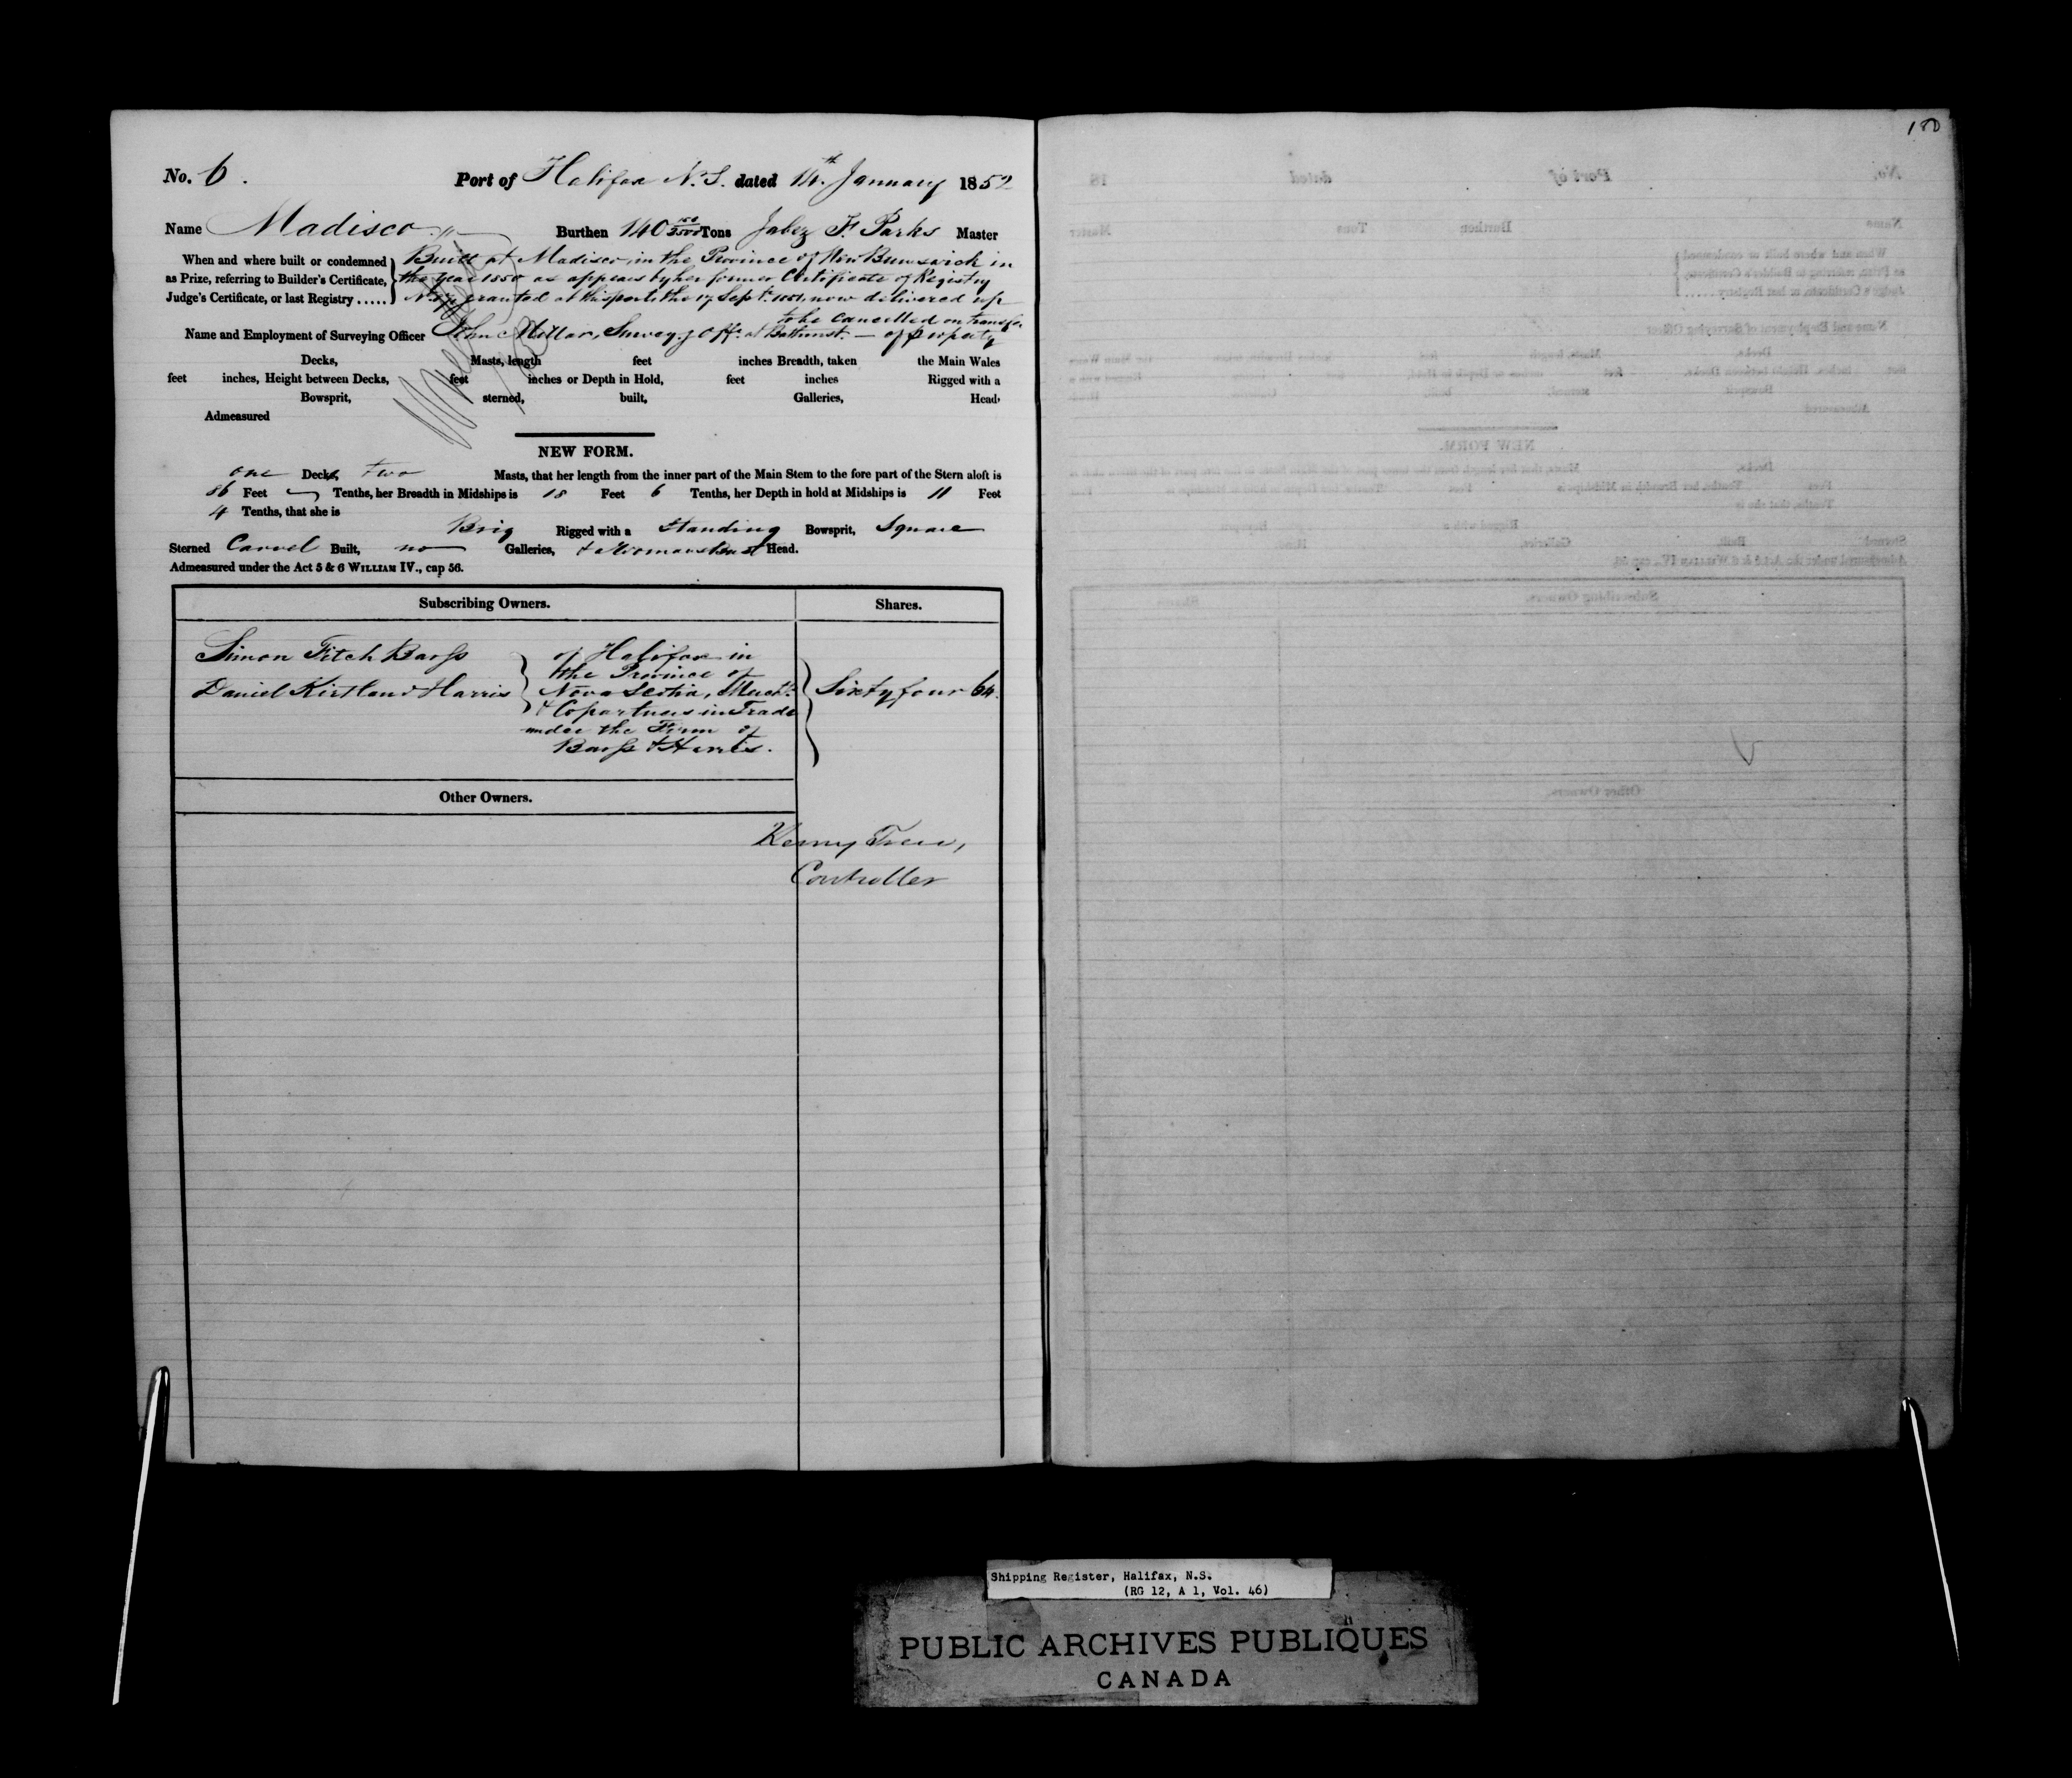 180
No. 6. Port of Halifax N.S. dated 14th January 1852
Name Madisco Burthen 140 150/3500 Tons Jabez F. Parks Master
When and where built or condemned as Prize, referring to Builder's Certificate, Judge's Certificate, or last Registry .....
Built at Madisco in the Province of New Brunswick in
the year 1850 as appears by her former Certificate of Registry
granted at this port the 17 Sept. 1851, now delivered up
to be cancelled on transfer
Name and Employment of Surveying Officer John Millar, Survey.g Offr. at Bathurst. — of property
Decks, Masts, length feet inches Breadth, taken the Main Wales
feet inches, Height between Decks, feet inches or Depth in Hold, feet inches Rigged with a
Bowsprit, sterned, built, Galleries, Head,
Admeasured
NEW FORM.
one Decks, two Masts, that her length from the inner part of the Main Stem to the fore part of the Stern aloft is
86 Feet Tenths, her Breadth in Midships is 18 Feet 6 Tenths, her Depth in hold at Midships is 11 Feet
4 Tenths, that she is
Brig Rigged with a Standing Bowsprit, Square
Sterned Carvel Built, no Galleries, & a Womans Bust Head.
Admeasured under the Act 5 & 6 WILLIAM IV., cap 56.
Subscribing Owners. Shares.
Simon Fitch Barss
Daniel Kirtland Harris
of Halifax in
the Province of
Nova Scotia, Mercts.
& Copartners in Trade
under the Firm of
Barss & Harris.
Sixty four 64.
Other Owners.
Controller
Shipping Register, Halifax, N.S.
(RG 12, A 1, Vol. 46)
PUBLIC ARCHIVES PUBLIQUES
CANADA